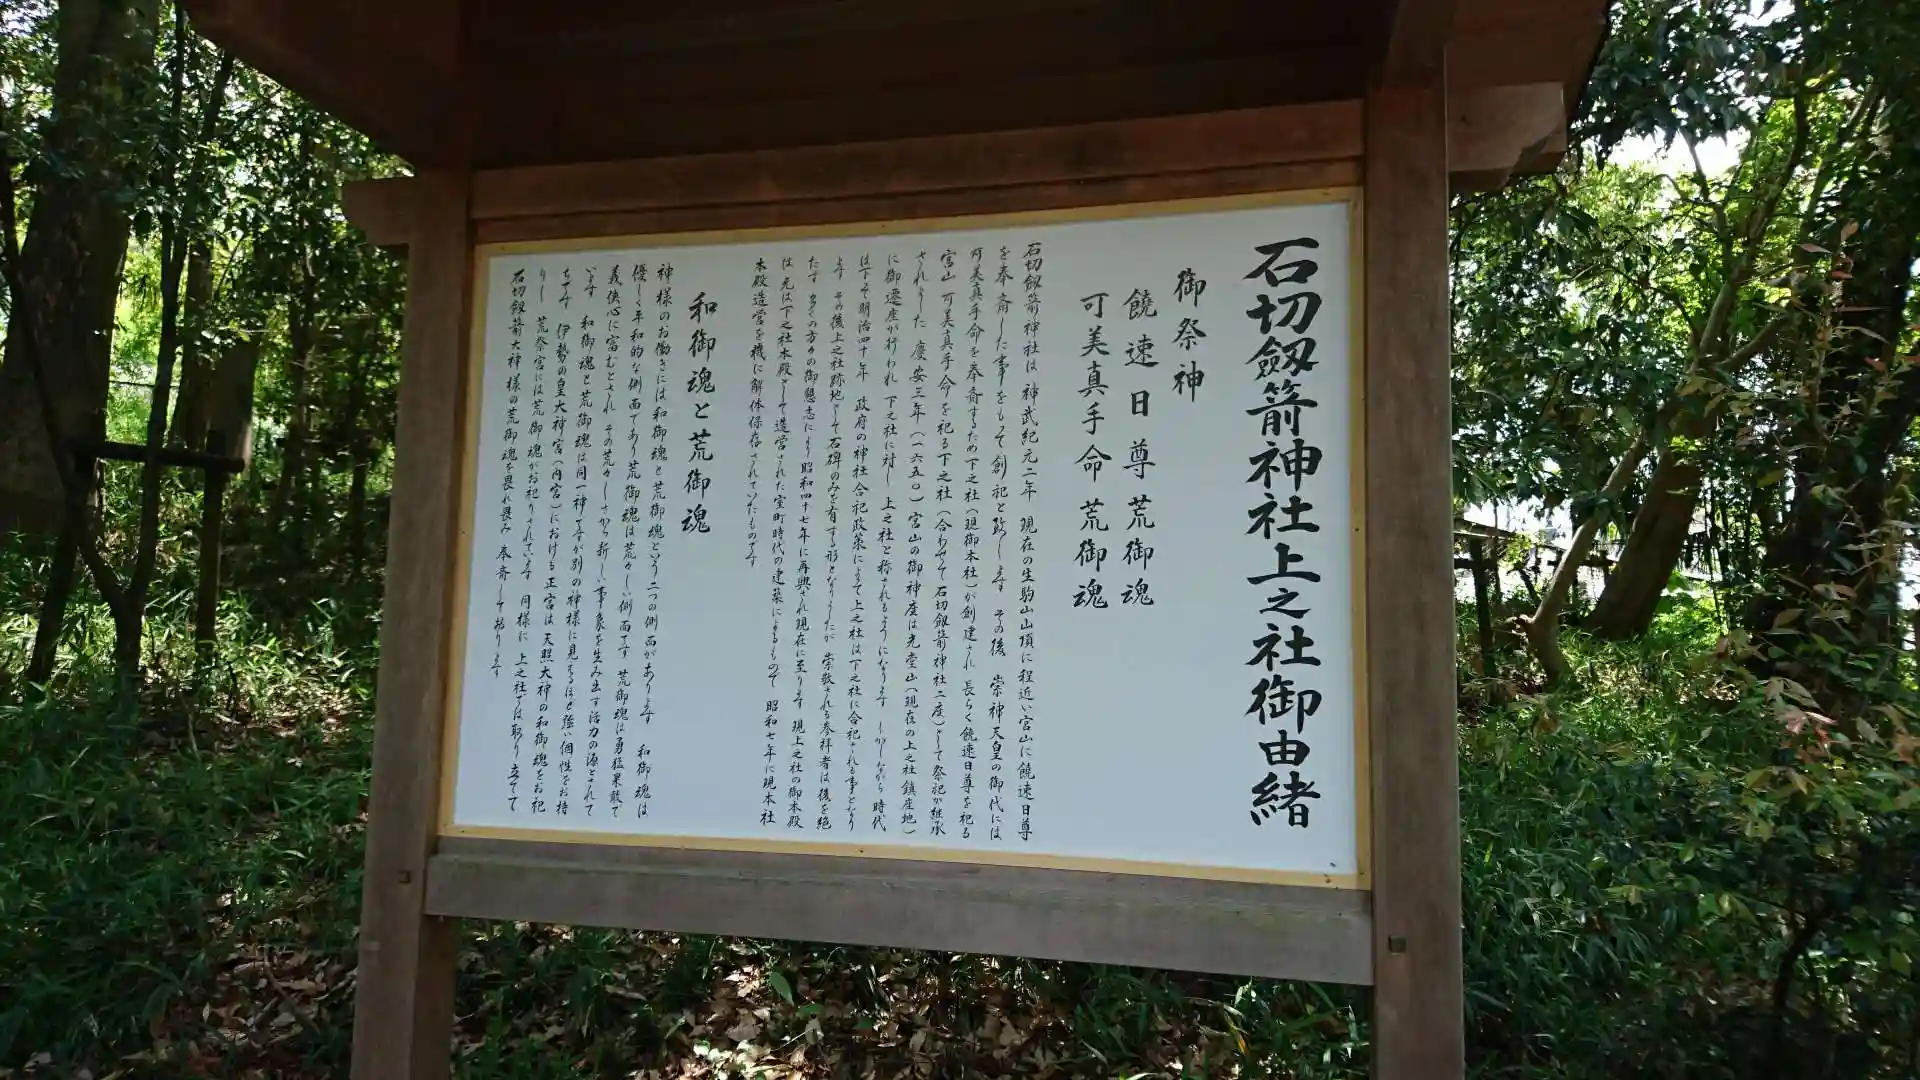 石切劔箭神社上之社御由緒
御祭神
饒速日尊 荒御魂
可美真手命 荒御魂
石切劔箭神社は 神武紀元二年 現在の生駒山山頂に程近い宮山に饒速日尊
を奉斎した事をもって創祀と致します その後 崇神天皇の御代には
可美真手命を奉斎するため下之社(現御本社)が創建され 長らく饒速日尊を祀る
宮山 可美真手命を祀る下之社(合わせて石切劔箭神社二座)として祭祀が継承
されました 慶安三年(一六五〇)宮山の御神座は光堂山(現在の上之社鎮座地)
に御遷座が行われ 下之社に対し 上之社と称されるようになります しかしながら 時代
は下って明治四十年 政府の神社合祀政策によって上之社は下之社に合祀される事となり
ます その後上之社跡地として石碑のみを有する形となりましたが 崇敬される参拝者は後を絶
たず 多くの方々の御懇志により昭和四十七年に再興され現在に至ります 現上之社の御本殿
は 元は下之社本殿として造営された室町時代の建築によるもので 昭和七年に現本社
本殿造営を機に解体保存されていたものです
和御魂と荒御魂
神様のお働きには 和御魂と荒御魂という二つの側面があります 和御魂は
優しく平和的な側面であり 荒御魂は荒々しい側面です 荒御魂は勇猛果敢で
義侠心に富むとされ その荒々しさから新しい事象を生み出す活力の源とされて
います 和御魂と荒御魂は同一神ですが別の神様に見えるほど強い個性をお持
ちです 伊勢の皇大神宮(内宮)における正宮は 天照大神の和御魂をお祀
りし 荒祭宮には荒御魂がお祀りされています 同様に 上之社では取り立てて
石切劔箭大神様の荒御魂を畏れ畏み 奉斎して居ります